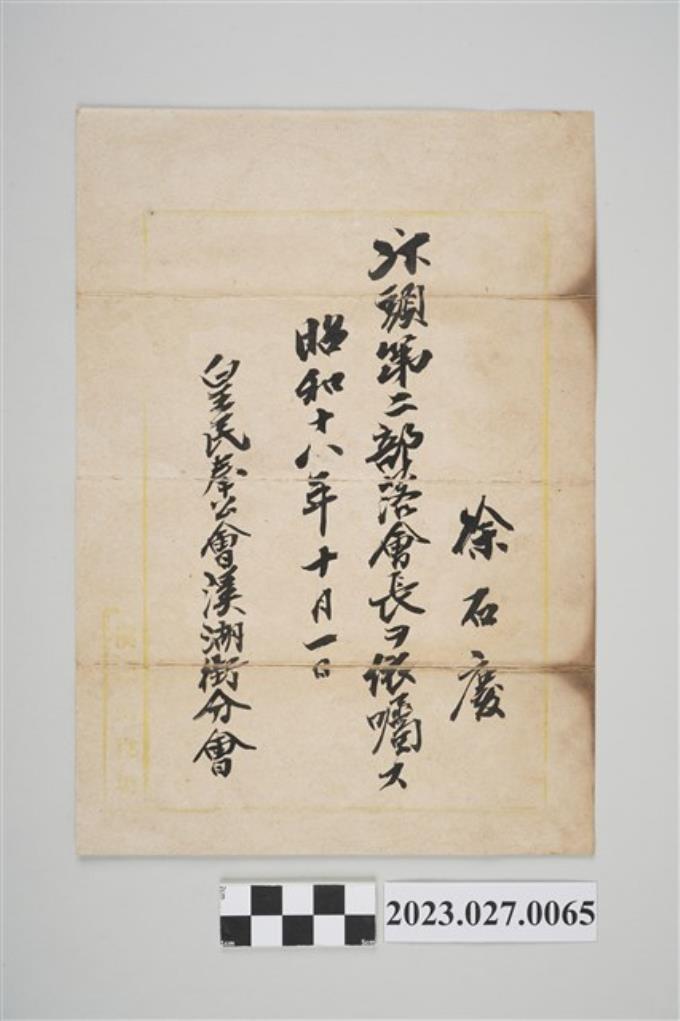 徐石慶
汴頭第二部落會長ヲ依囑ス
昭和十八年十月一日
皇民奉公會溪湖街分會
2023.027.0065